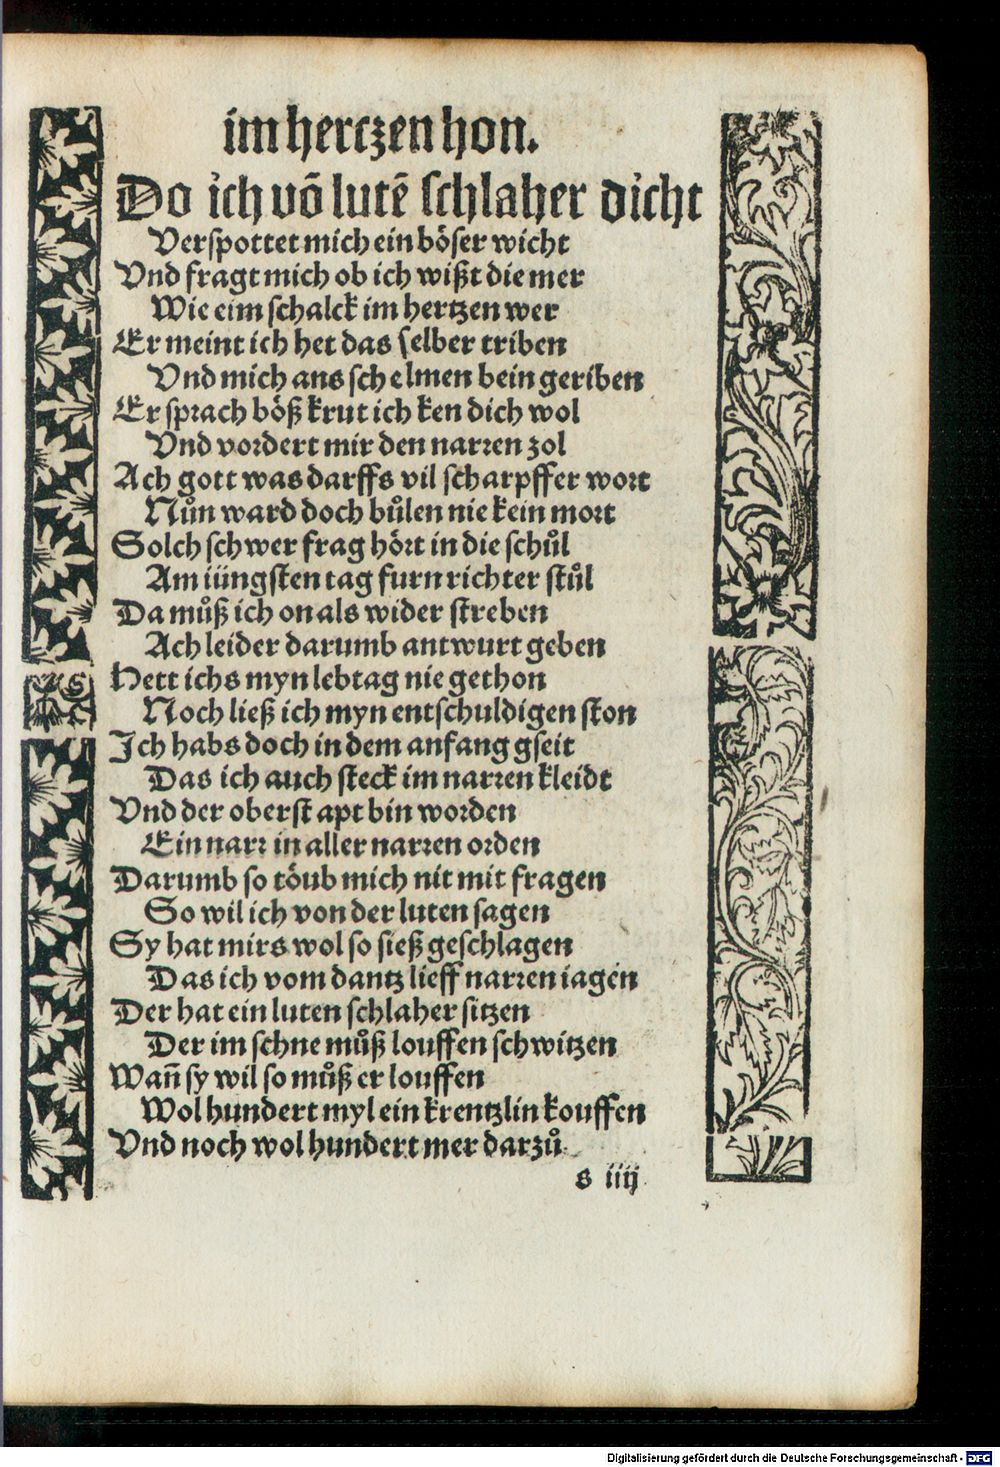 im hertzen hon.
Do ich võ lutẽ schlaher dicht
Verspottet mich ein böser wicht
Vnd fragt mich ob ich wißt die mer
Wie eim schalck im hertzen wer
Er meint ich het das selber triben
Vnd mich ans schelmen bein geriben
Er sprach böß krut ich ken dich wol
Vnd vordert mir den narren zol
Ach gott was darffs vil scharpffer wort
Nůn ward doch bůlen nie kein mort
Solch schwer frag hört in die schůl
Am iüngsten tag furn richter stůl
Da můß ich on als wider streben
Ach leider darumb antwurt geben
Hett ichs myn lebtag nie gethon
Noch ließ ich myn entschuldigen ston
Ich habs doch in dem anfang gseit
Das ich auch steck im narren kleidt
Vnd der oberst apt bin worden
Ein narr in aller narren orden
Darumb so töub mich nit mit fragen
So wil ich von der luten sagen
Sy hat mirs wol so sieß geschlagen
Das ich vom dantz lieff narren iagen
Der hat ein luten schlaher sitzen
Der im schne můß louffen schwitzen
Wañ sy wil so můß er louffen
Wol hundert myl ein krentzlin kouffen
Vnd noch wol hundert mer darzů
s iiij
Digitalisierung gefördert durch die Deutsche Forschungsgemeinschaft - DFG